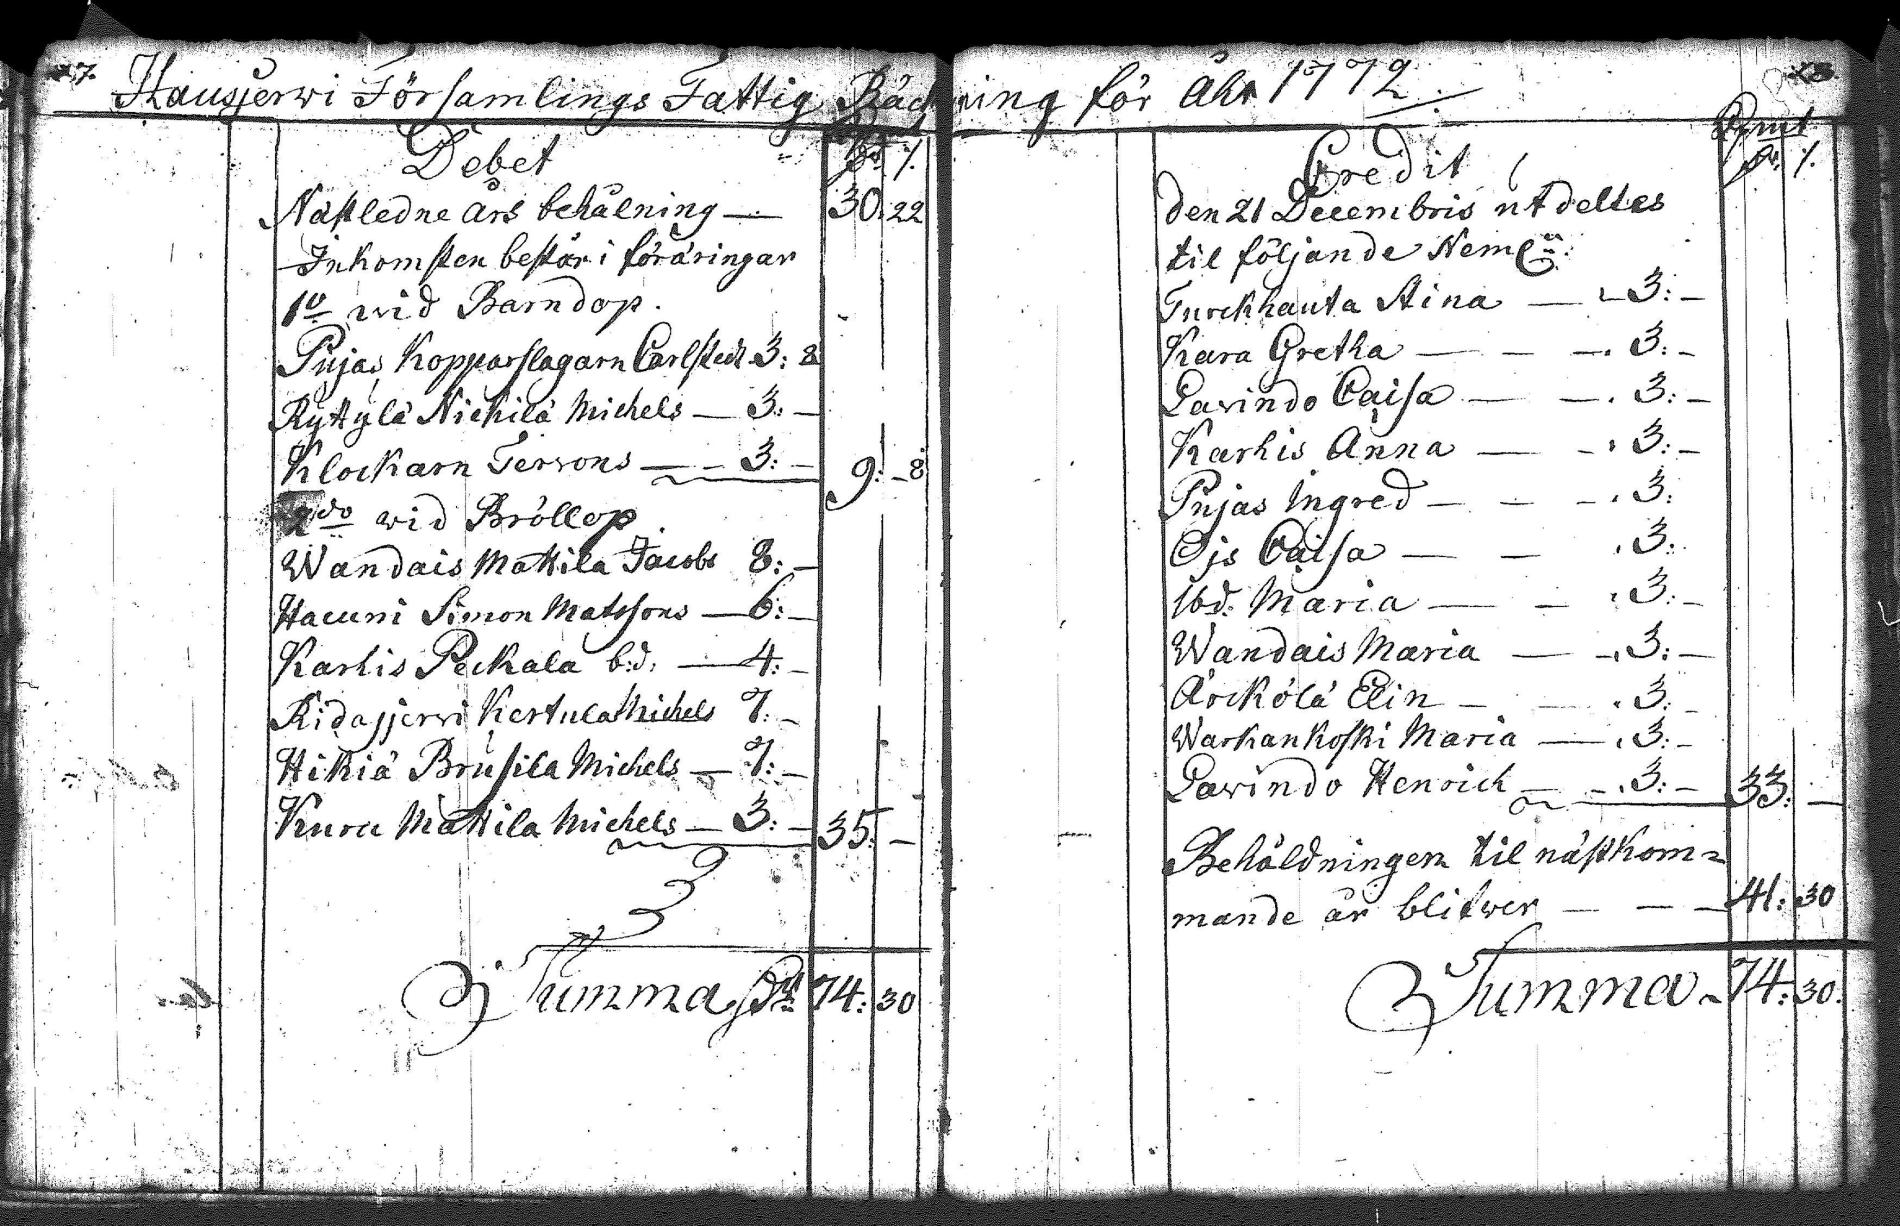 Hausjerwi Församlings Fattig Räckning för Åhr 1772.
Debet
Nästledne års behålning — 30. 22
Inkomsten består i föräringar
1o wid Barndop.
Pujas Kopparslagarn Carlstedt 3: 8
Ryttylä Nickilä Michels — 3: —
Klockarn Ferrons — — 3: — 9: — 8
2do wid Bröllop
Wandais Mattila Jacobs 8: —
Hacuni Simon Matssons — 6: —
Karhis Peckala b:d: — 4: —
Ridasjerwi Kertula Michels 7: —
Hikiä Brusila Michels — 7: —
Kuru Mattila Michels — 3: — 35: —
Summa 74: 30
17.
Credit
den 21 Decembris utdeltes
til följande Neml:
Turckhauta Stina — 3: —
Kara Gretha — — 3: —
Lavindo Caisa — — 3: —
Karhis Anna — — 3: —
Pujas Ingred — — 3:
Ojs Caisa — — 3:
ibd: Maria — — 3: —
Wandais Maria — — 3: —
Arckölä Elin — — 3: —
Warkankoski Maria — 3: —
Lavindo Henrich — — 3: — 33: —
Behåldningen til nästkom=
mande år blifwer — — — 41: 30
Summa 74: 30.